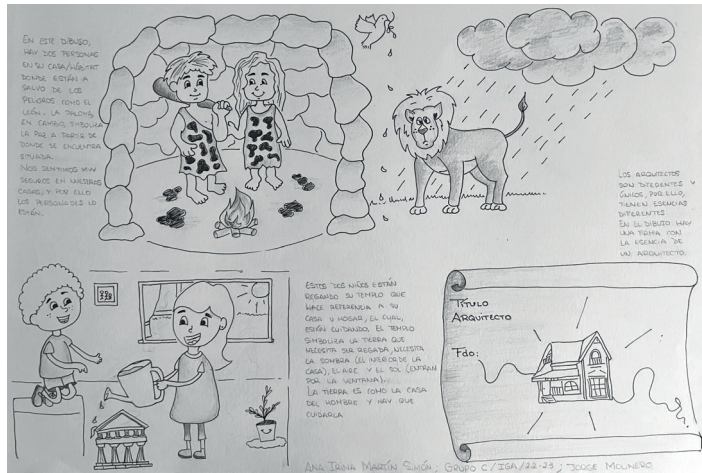 EN ESTE DIBUJO,
HAY DOS PERSONAS
EN SU CASA/HÁBITAT
DONDE ESTÁN A
SALVO DE LOS
PELIGROS COMO EL
LEÓN, LA PALOMA,
EN CAMBIO, SIMBOLIZA
LA PAZ A PARTIR DE
DONDE SE ENCUENTRA
SITUADA.
NOS SENTIMOS MUY
SEGUROS EN NUESTRAS
CASAS, Y POR ELLO
LOS PERSONAJES LO
ESTÁN.
LOS ARQUITECTOS
SON DIFERENTES Y
ÚNICOS, POR ELLO,
TIENEN ESENCIAS
DIFERENTES.
EN EL DIBUJO HAY
UNA FIRMA CON
LA ESENCIA DE
UN ARQUITECTO.
ESTOS DOS NIÑOS ESTÁN
REGANDO SU TEMPLO QUE
HACE REFERENCIA A SU
CASA U HOGAR, EL CUAL,
ESTÁN CUIDANDO. EL TEMPLO
SIMBOLIZA LA TIERRA QUE
NECESITA SER REGADA, NECESITA
LA SOMBRA (EL INTERIOR DE LA
CASA), EL AIRE Y EL SOL (ENTRAN
POR LA VENTANA)...
LA TIERRA ES COMO LA CASA
DEL HOMBRE Y HAY QUE
CUIDARLA
TÍTULO
ARQUITECTO
Fdo:
ANA IRINA MARTÍN SIMÓN; GRUPO C/IGA/22-23; JORGE MOLINERO